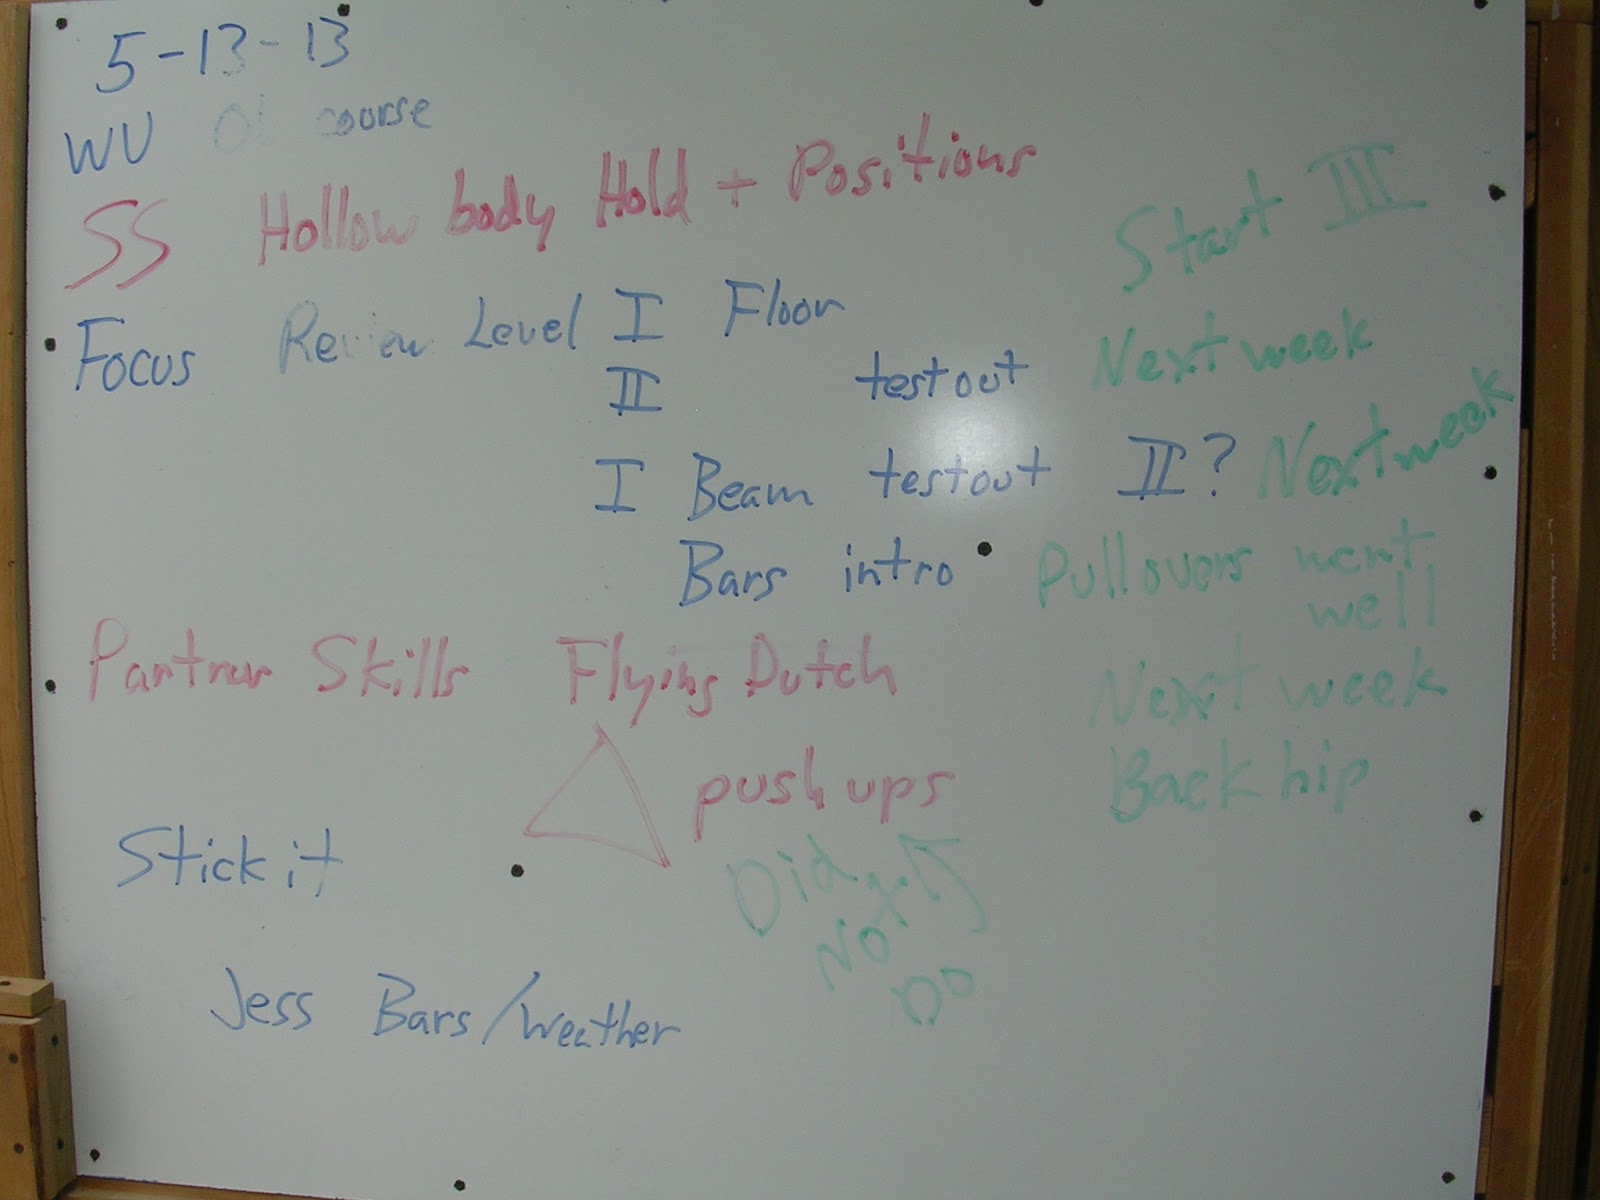 5-13-13
WU Ob course
SS Hollow body Hold + Positions
Start III
Focus Review Level I Floor
Next week
II testout
I Beam testout II? Next week
Bars intro Pullovers went
well
Partner Skills Flying Dutch
Next week
push ups
Back hip
Stick it
Did
Not
Do
Jess Bars/weather